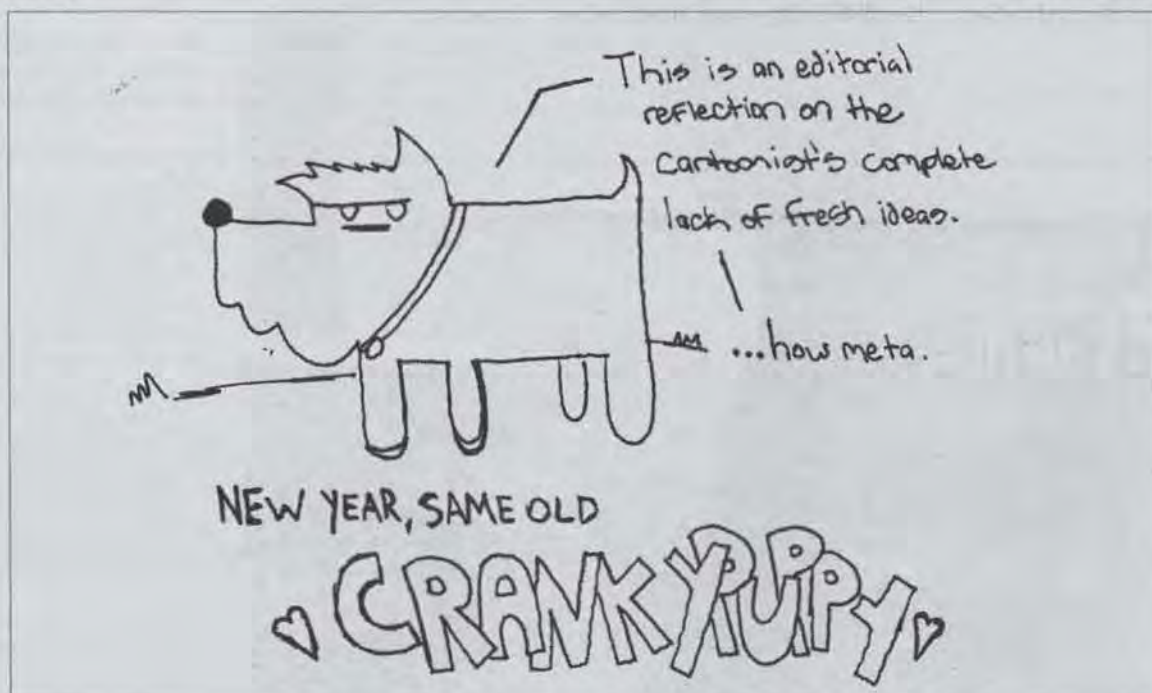 This is an editorial
reflection on the
cartoonist's complete
lack of fresh ideas.
...how meta.
NEW YEAR, SAME OLD
CRANKY PUPPY